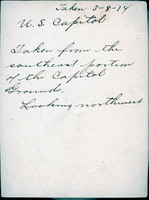 Taken 3-8-14
U.S. Capitol
Taken from the
southeast portion
of the Capitol
Grounds.
Looking northwest